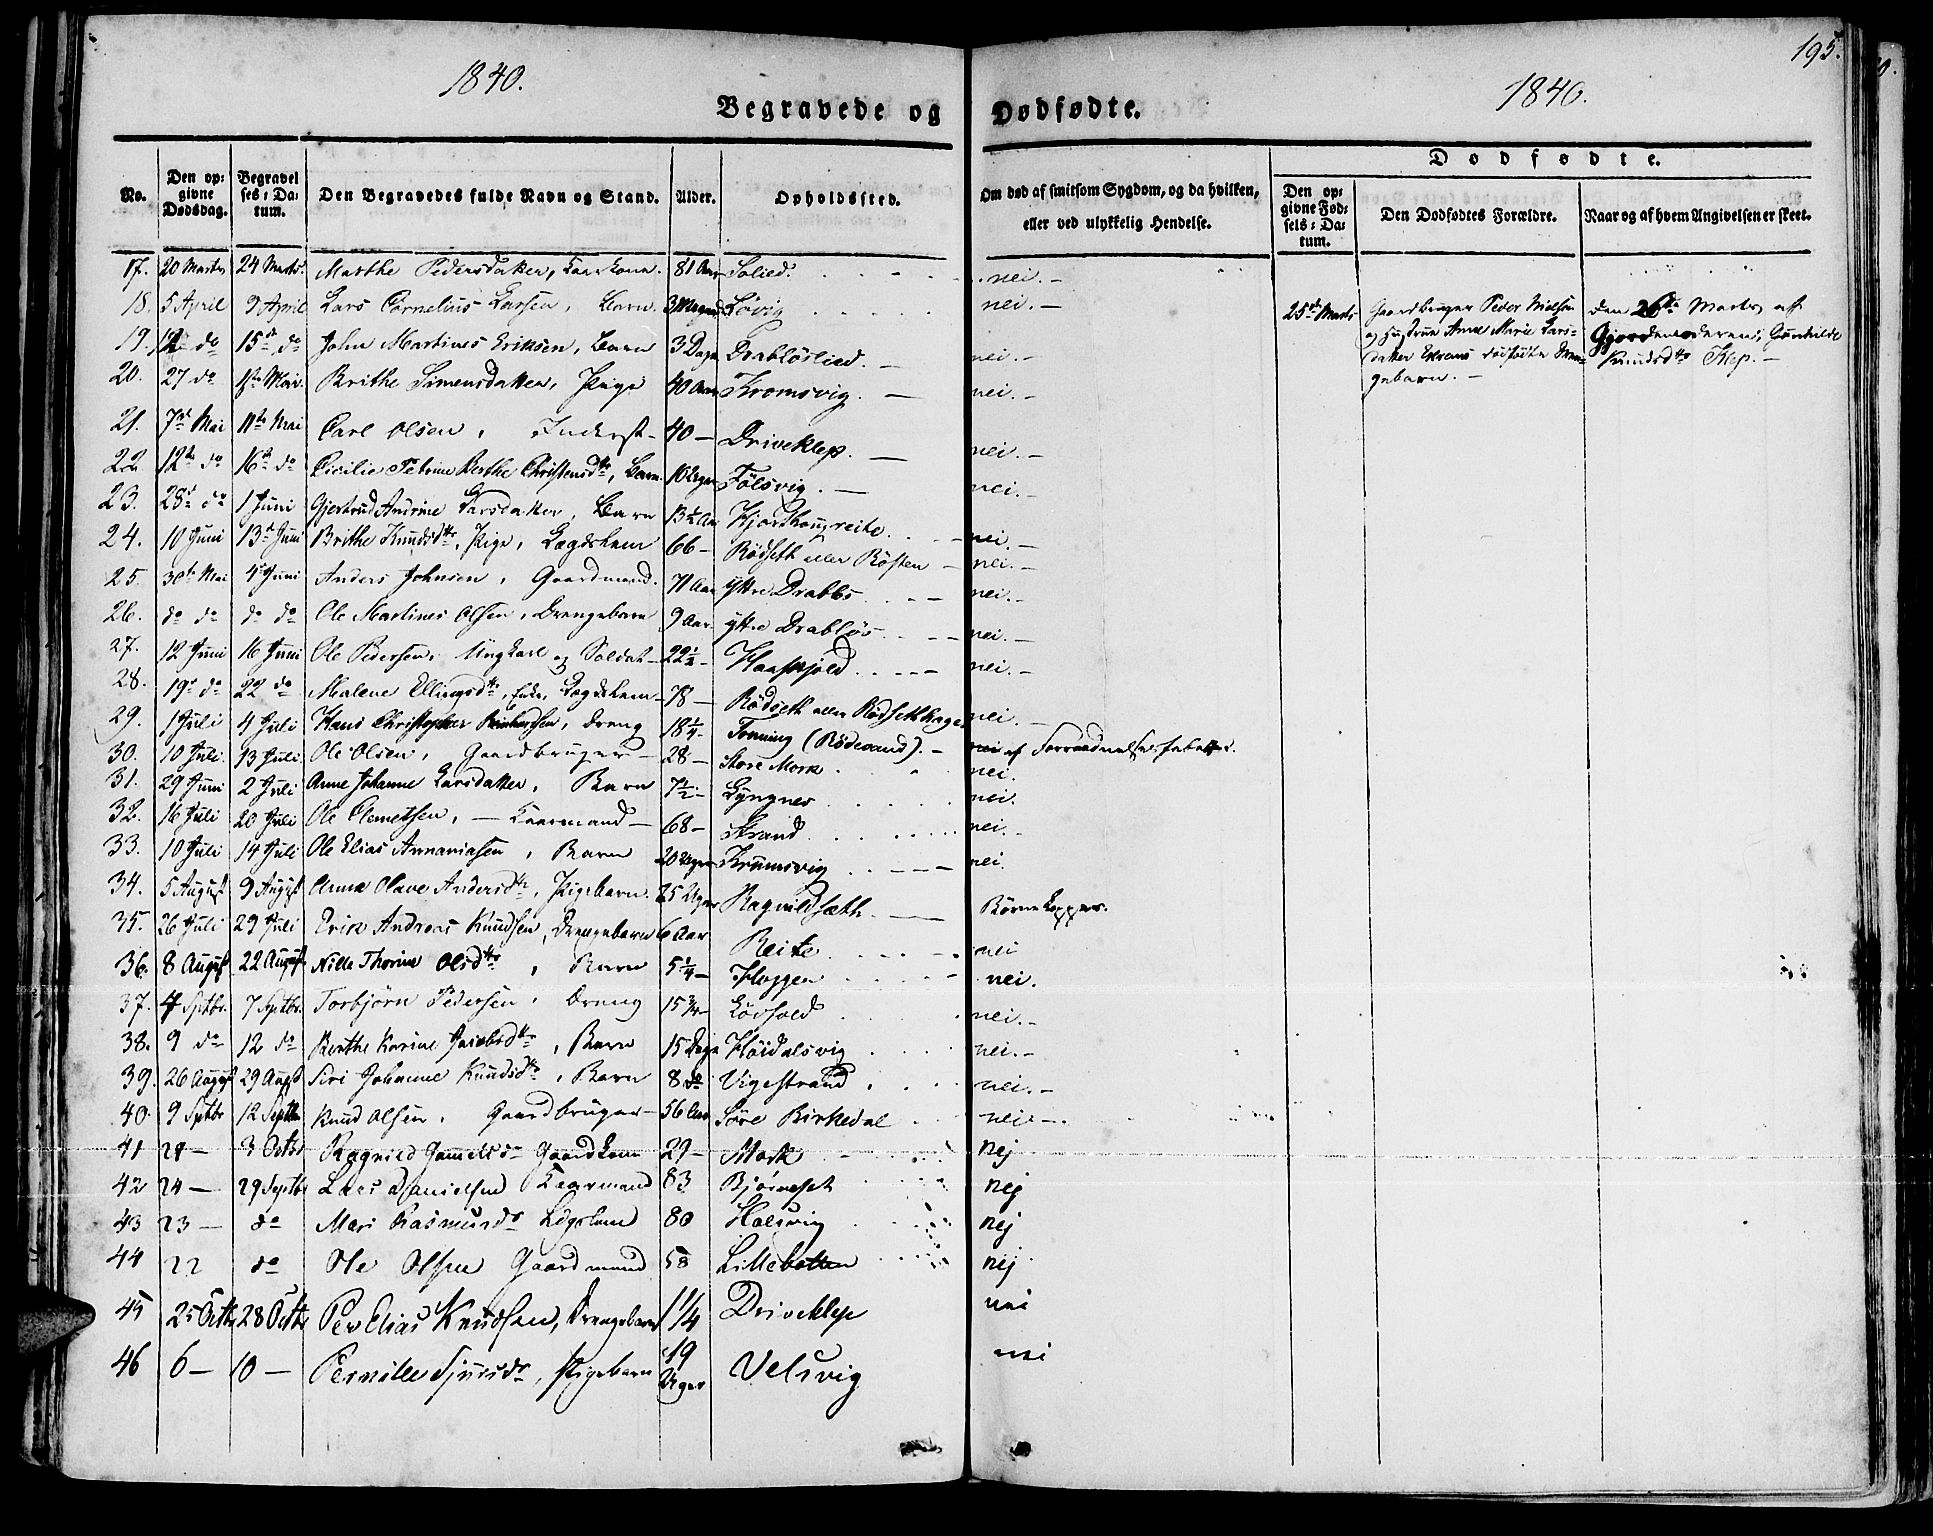 1840.
195.
1840.
Begravede og Dødfødte.
Dødfødte.
No.
Den opgivne Dødsdag.
Begravelses-Datum.
Den Begravedes fulde Navn og Stand.
Alder.
Opholdssted.
Om død af smitsom Sygdom, og da hvilken, eller ved ulykkelig Hendelse.
Den opgivne Fødsels-Datum.
Den Dødfødtes Forældre.
Naar og af hvem Angivelsen er skeet.
17. 20 Marts 24 Marts Marthe Pedersdatter, Kaarkone. 81 Aar Solied. nei.-
18. 5 April 9 April Lars Cornelius Larsen, Barn 3 Løvig nei.-
19. 12 do 15de do John Martinus Eriksen, Barn 3 Dage Drabløslied. nei.-
20. 27 do 1ste Mai. Brithe Simensdatter, Pige 40 Aar Kromsvig. nei.-
21. 7de Mai 11te Mai Carl Olsen, Inderst- 40- Driveklep. nei.-
22. 12te do 16de do Cicilie Petrine Berthe Christensdtr, Barn 10 Uger Følsvig. nei.-
23. 28de do 1 Juni Gjertrud Andrine Larsdatter, Barn 13½ Aar Hjorthougreite nei.-
24. 10 Juni 13de Juni Brithe Knudsdtr, Pige, Lægdslem 66- Rødseth eller Røften nei.-
25. 30te Mai 4de Juni Anders Johnsen, Gaardmand. 71 Aar Yttre Drabløs nei.-
26. do do do do Ole Martinus Olsen, Drengebarn 9 Aar yttre Drabløs nei.-
27. 12 Juni 16 Juni Ole Pedersen, Ungkarl og Soldat- 22½- Haaskjold nei.-
28. 19de do 22 do Malene Ellingsdtr, Enke, Lægdslem- 78- Rødseth eller Rødsethhage nei.-
29. 1 Juli 4 Juli Hans Christopher Reinhardsen, Dreng 18¼- Tonning (Rødevand).- nei af Forraadnelsesfeber.
30. 10 Juli. 13 Juli Ole Olsen, Gaardbruger- 28- Store Mork nei.
31. 29 Juni 2 Juli Anne Johanne Larsdatter, Barn 7½- Lyngnes nei.
32. 16 Juli 20 Juli Ole Clemetsen,- Kaarmand- 68- Strand nei.-
33. 10 Juli 14 Juli Ole Elias Annaniasen, Barn 20 Uger Krumsvig nei.
34. 5 August 9 August Anne Olave Andersdtr, Pigebarn. 25 Uger Ragnildsæth. Børnekopper.
35. 26 Juli 29 Juli Andreas Knudsen, Drengebarn 6 Aar Reite nei
36. 8 August 22 August Nille Thorine Olsdtr, Barn 5¼- Floggen nei.
37. 4 Septbr. 7 Septbr. Torbjørn Pedersen, Dreng 15¾- Løvfold nei.-
38. 9 do 12 do Berthe Karine Jacobsdtr, Barn 15 Dage Høidalsvig nei.-
39. 26 August 29 August Siri Johanne Knudsdtr, Barn 8 do Vigestrand nei.-
40. 9 Septbr 12 Septbr Knud Olsen, Gaardbruger- 56 Aar Søre Birkedal nei-.
41 28- 3 Octbr Ragnild Gammelsdr Gaardkone 29- Mork nej
42 24- 29 Septbr Lars Danielsen Kaarmand 83 Bjørneset nej
43 23- do Mari Rasmusdr Lægslem 80 Holsvig nej
44 22 do Ole Olsen Gaardmand 58 Lillebotten nej
45 25 Octbr 28 Octbr Per Elias Knudsen, Drengebarn 1 1/4 Driveklep nei
46 6- 10- Pernille Sjursdr, Pigebarn 19 Uger Velsvig nei
25de Marts Gaardbruger Peder Nielsen
og Hustrue Anne Marie Larsdatter
Ekrens dødfødte Drengebarn.-
den 26de Marts af
Gjordemoderen, Gunhilde
Knudsdtr Klep.-